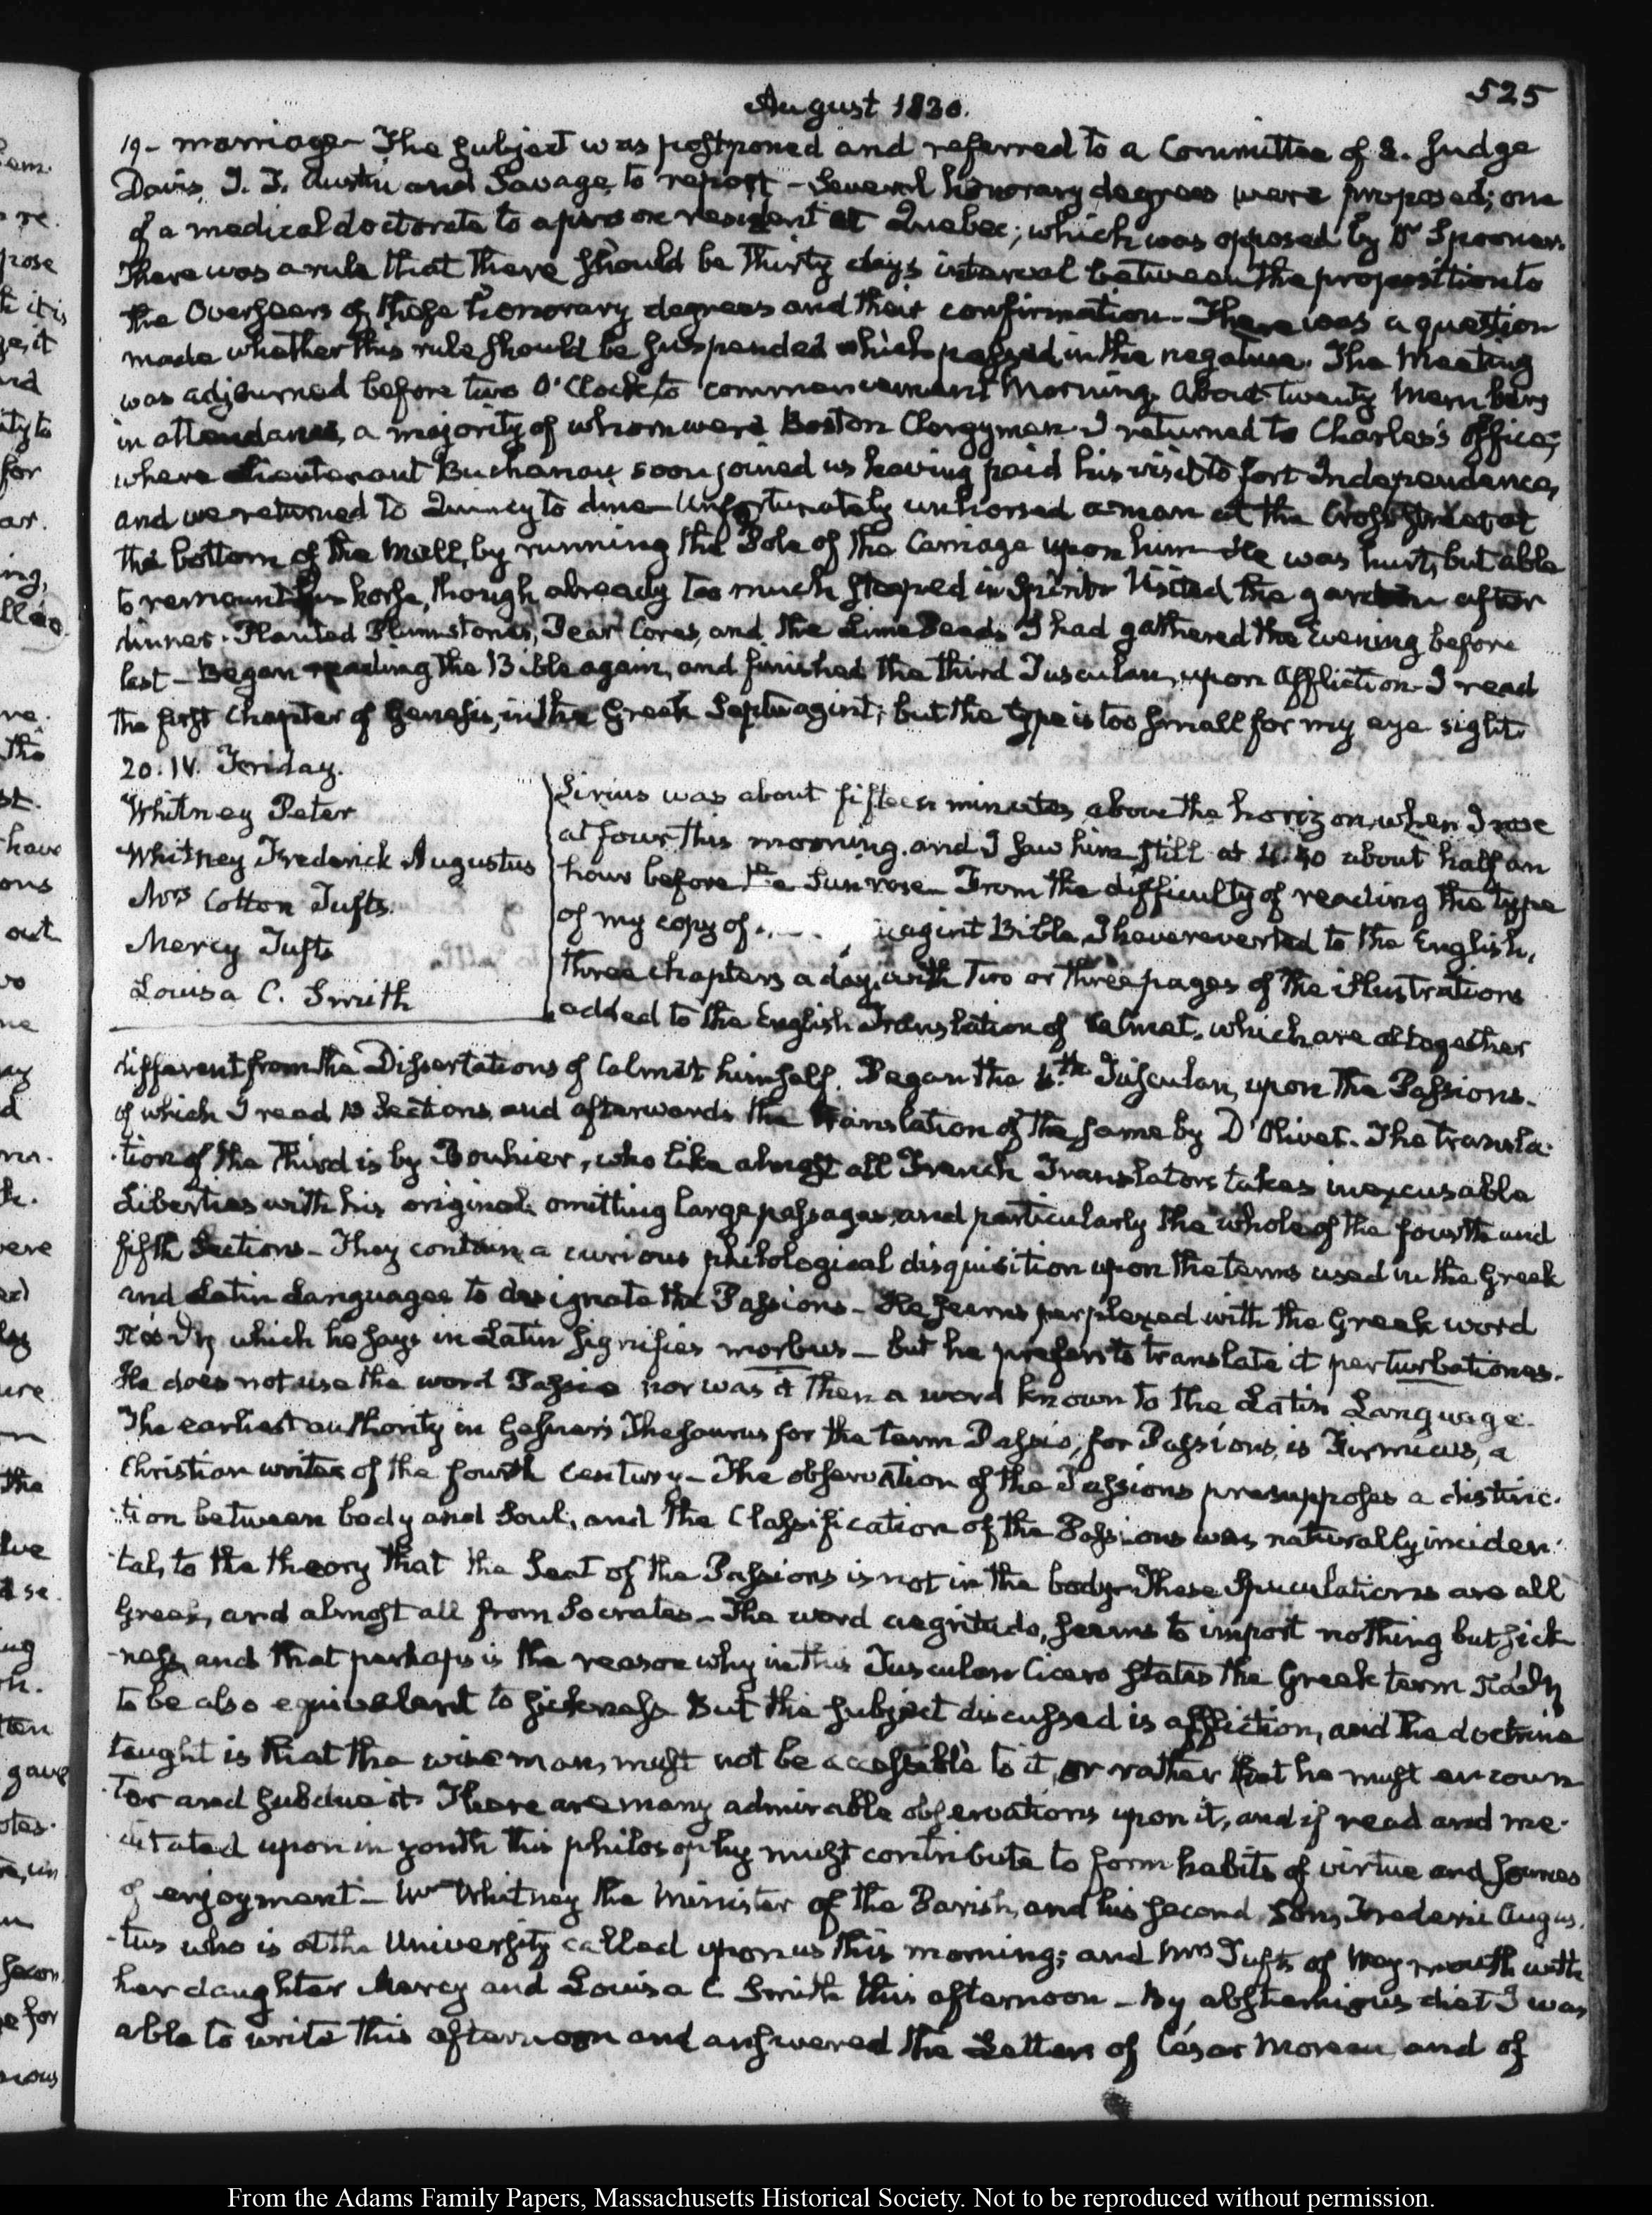 525
August 1830.
19- marriage- The subject was postponed and referred to a Committee of 2. Judge
Davis, J. T. Austin and Savage, to report - Several honorary degrees were proposed; one
of a medical doctorate to a person resident at Quebec; which was opposed by Dr Spooner.
There was a rule that there should be thirty days interval between the proposition to
the Overseers of these honorary degrees and their confirmation. There was a question
made whether this rule should be suspended which passed in the negative. The Meeting
was adjourned before two O'Clock to commencement Morning. About twenty Members
in attendance, a majority of whom were Boston Clergymen. I returned to Charles's Office;
where Lieutenant Buchanan soon joined us having paid his visit to fort Independence,
and we returned to Quincy to dine- Unfortunately unhorsed a man at the Cross Street at
the bottom of the Mall, by running the Pole of the Carriage upon him- He was hurt, but able
to remount his horse, though already too much steeped in Spirits- Visited the garden after
dinner. Planted Plumstones, Pear Cores, and the Lime Seeds I had gathered the Evening before
last- Began reading the Bible again, and finished the third Tusculan, upon Affliction- I read
the first Chapter of Genesis, in the Greek Septuagint; but the type is too small for my eye sight.
20. IV. Friday.
Whitney Peter
Whitney Frederick Augustus
Mrs Cotton Tufts.
Mercy Tufts
Louisa C. Smith
Sirius was about fifteen minutes above the horizon, when I rose
at four this morning. and I saw him still at 4:40 about half an
hour before the Sun rose- From the difficulty of reading the type
of my copy of uagint Bible, I have reverted to the English,
three chapters a day, with two or three pages of the illustrations
added to the English Translation of Calmet, which are altogether
different from the Dissertations of Calmet himself. Began the 4.th Tusculan, upon the Passions-
of which I read 13 Sections and afterwards the translation of the same by D'Olivet. The transla-
tion of the Third is by Bouhier, who like almost all French Translators takes inexcusable
Liberties with his original; omitting large passages, and particularly the whole of the fourth and
fifth Sections- They contain a curious philological disquisition upon the terms used in the Greek
and Latin Languages to designate the Passions- He seems perplexed with the Greek word
πάθη which he says in Latin signifies morbus- But he prefers to translate it perturbationes.
He does not use the word Passio nor was it then a word known to the Latin Language.
The earliest authority in Gesner's Thesaurus for the term Passio, for Passions, is Firmicus, a
Christian writer of the fourth Century- The observation of the Passions presupposes a distinc-
tion between body and Soul, and the Classification of the Passions was naturally inciden-
tal, to the theory that the Seat of the Passions is not in the body- These Speculations are all
Greek, and almost all from Socrates- The word aegritudo, seems to import nothing but sick-
-ness, and that perhaps is the reason why in this Tusculan Cicero states the Greek term πάθη
to be also equivalent to sickness. But the subject discussed is affliction, and the doctrine
taught is that the wise man, must not be accessible to it, or rather that he must encoun-
ter and subdue it. There are many admirable observations upon it, and if read and me-
ditated upon in youth this philosophy must contribute to form habits of virtue and sources
of enjoyment- Mr Whitney the Minister of the Parish, and his second Son, Frederic Augus-
-tus who is at the University called upon us this morning; and Mrs Tufts of Weymouth with
her daughter Mercy and Louisa C Smith this afternoon- By abstemious diet I was
able to write this afternoon and answered the Letters of César Moreau and of
From the Adams Family Papers, Massachusetts Historical Society. Not to be reproduced without permission.